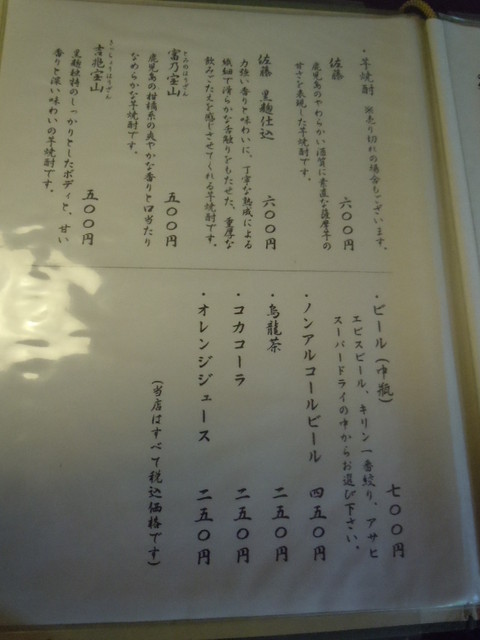 ・芋焼酎　※売り切れの場合もございます。
佐藤　六〇〇円
鹿児島のやわらかい酒質に素直な薩摩芋の
甘さを表現した芋焼酎です。
佐藤　黒麹仕込　六〇〇円
力強い香りと味わいに、丁寧な熟成による
繊細で滑らかな舌触りをもたせた、重厚な
飲みごたえを感じさせてくれる芋焼酎です。
とみのほうざん
富乃宝山　五〇〇円
鹿児島の柑橘系の爽やかな香りと口当たり
なめらかな芋焼酎です。
きっちょうほうざん
吉兆宝山　五〇〇円
黒麹独特のしっかりとしたボディと、甘い
香りと深い味わいの芋焼酎です。
・ビール（中瓶）　七〇〇円
エビスビール、キリン一番絞り、アサヒ
スーパードライの中からお選び下さい。
・ノンアルコールビール　四五〇円
・烏龍茶　二五〇円
・コカコーラ　二五〇円
・オレンジジュース　二五〇円
（当店はすべて税込価格です）